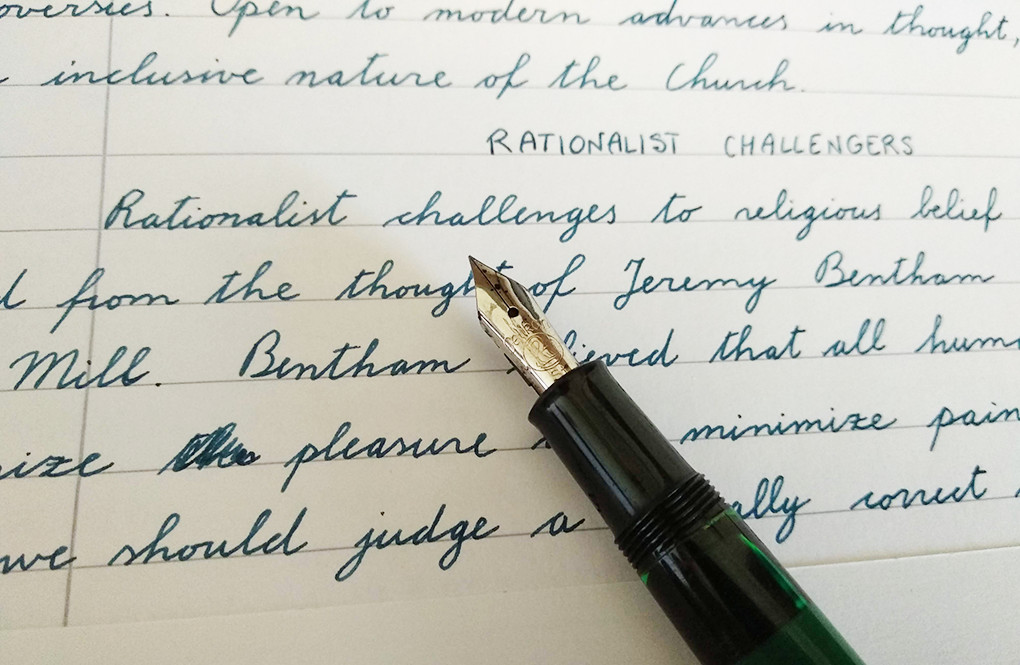 Open to modern advances in thought,
inclusive nature of the Church.
RATIONALIST CHALLENGERS
Rationalist challenges to religious belief
from the thought of Jeremy Bentham
Mill. Bentham that all
pleasure minimize pain
we should judge a correct